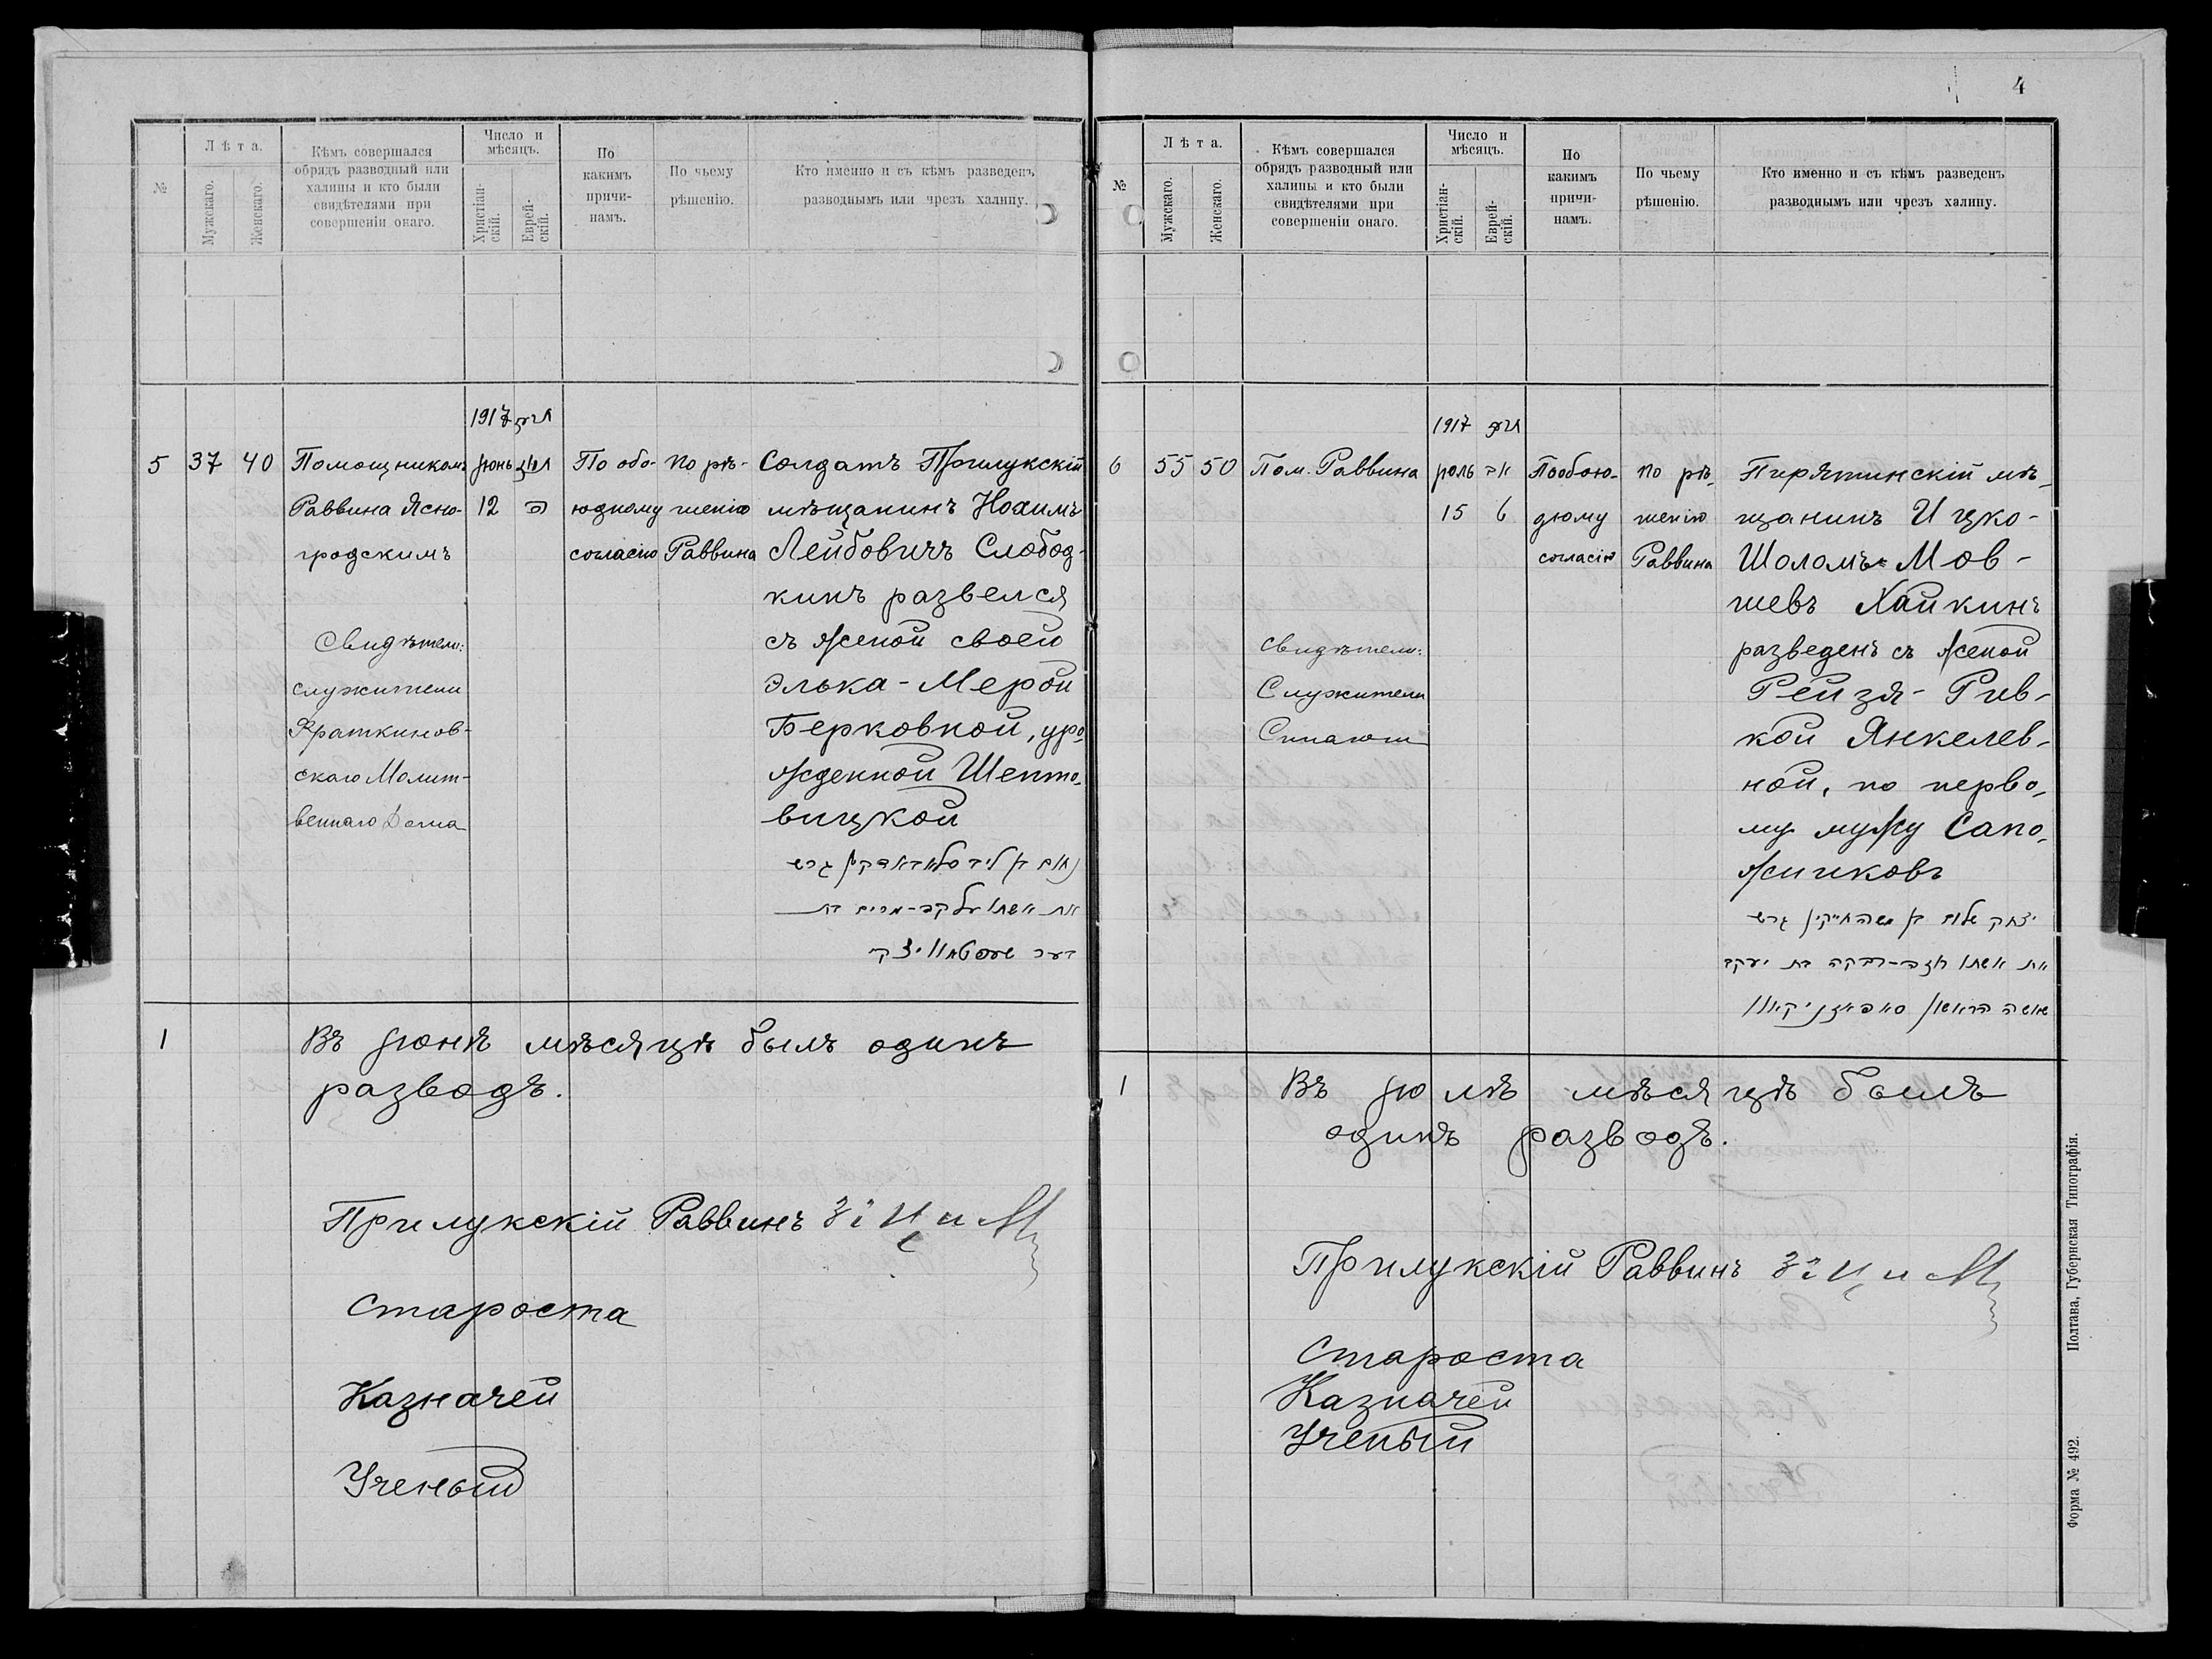 №
Лѣта.
Мужскаго.
Женскаго.
Кѣмъ совершался
обрядъ разводный или
халицы и кто были
свидѣтелями при
совершеніи онаго.
Число и
мѣсяцъ.
Христіан-
скій.
Еврей-
скій.
По
какимъ
причи-
намъ.
По чьему
рѣшенію.
Кто именно и съ кѣмъ разведенъ
разводнымъ или чрезъ халицу.
1917
5 37 40
Помощникомъ
Раввина Ясно-
градскимъ
Свидѣтели:
служители
Фраткинов-
скаго Молит-
веннаго Дома
Іюнь
12
По обо-
юдному
согласію
По рѣ-
шенію
Раввина
Солдатъ Прилукскій
мѣщанинъ Нохимъ
Лейбовичъ Слобод-
кинъ развелся
съ женой своей
Элька-Мерой
Берковной, уро-
жденной Шепто-
вицкой
1
Въ Іюнѣ мѣсяцѣ былъ одинъ
разводъ.
Прилукскій Раввинъ
Староста
Казначей
Ученый
4
№
Лѣта.
Мужскаго.
Женскаго.
Кѣмъ совершался
обрядъ разводный или
халицы и кто были
свидѣтелями при
совершеніи онаго.
Число и
мѣсяцъ.
Христіан-
скій.
Еврей-
скій.
По
какимъ
причи-
намъ.
По чьему
рѣшенію.
Кто именно и съ кѣмъ разведенъ
разводнымъ или чрезъ халицу.
1917
6 55 50
Пом. Раввина
Свидѣтели:
Служители
Синагоги
Іюль אב
15 6
По обою-
дному
согласію
По рѣ-
шенію
Раввина
Пирятинскій мѣ-
щанинъ Ицко-
Шоломъ Мов-
шевъ Хайкинъ
разведенъ съ женой
Рейзя-Рив-
кой Янкелев-
ной, по перво-
му мужу Сапо-
жниковъ
יצחק שלום בן משה חייקין גרש
את אשתו רוזה-רבקה בת יעקב
1
Въ Іюлѣ мѣсяцѣ былъ
одинъ разводъ.
Прилукскій Раввинъ
Староста
Казначей
Ученый
Форма № 492.
Полтава, Губернская Типографія.